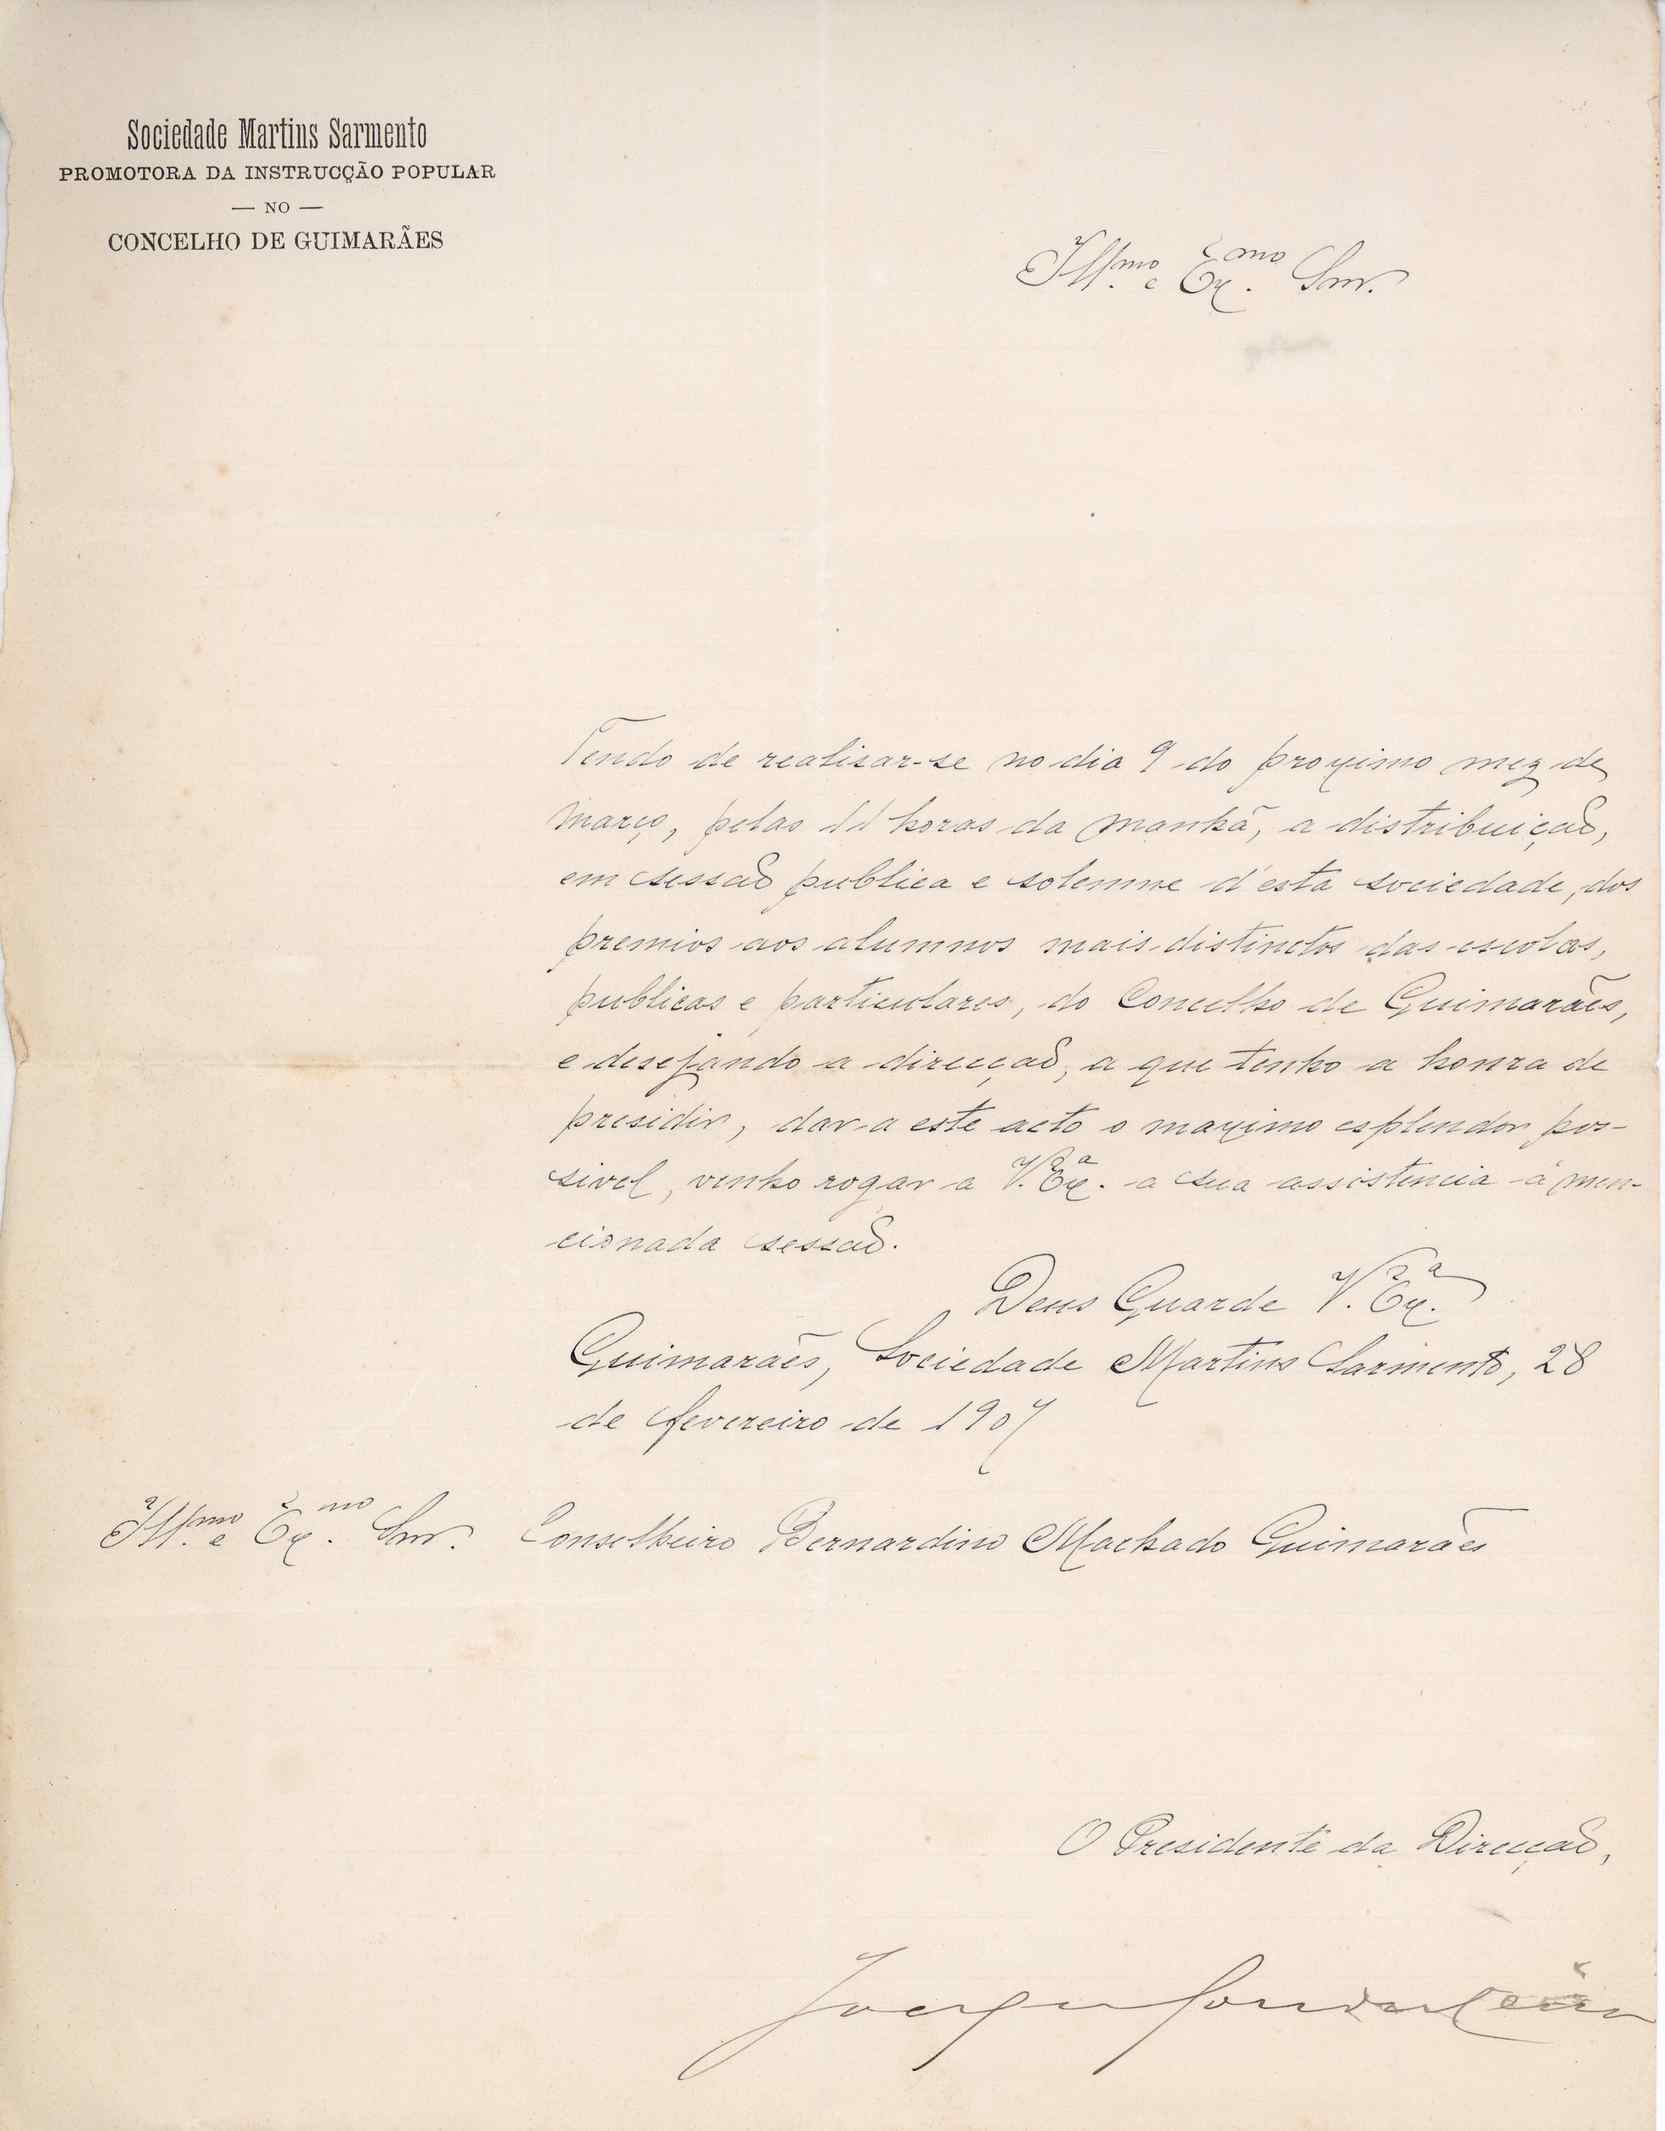 Sociedade Martins Sarmento
PROMOTORA DA INSTRUCÇÃO POPULAR
— NO —
CONCELHO DE GUIMARÃES
Ill.mo e Ex.mo Snr.
Tendo de realisar-se no dia 9 do proximo mez de
março, pelas 11 horas da manhã, a distribuição,
em sessão publica e solemne d'esta sociedade, dos
premios aos alumnos mais distinctos das escolas,
publicas e particulares, do Concelho de Guimarães,
e desejando a direcção, a que tenho a honra de
presidir, dar a este acto o maximo esplendor pos-
sivel, venho rogar a V. Ex.a a sua assistencia á men-
cionada sessão.
Deus Guarde V. Ex.a
Guimarães, Sociedade Martins Sarmento, 28
de fevereiro de 1907
Ill.mo e Ex.mo Snr. Conselheiro Bernardino Machado Guimarães
O Presidente da Direcção,